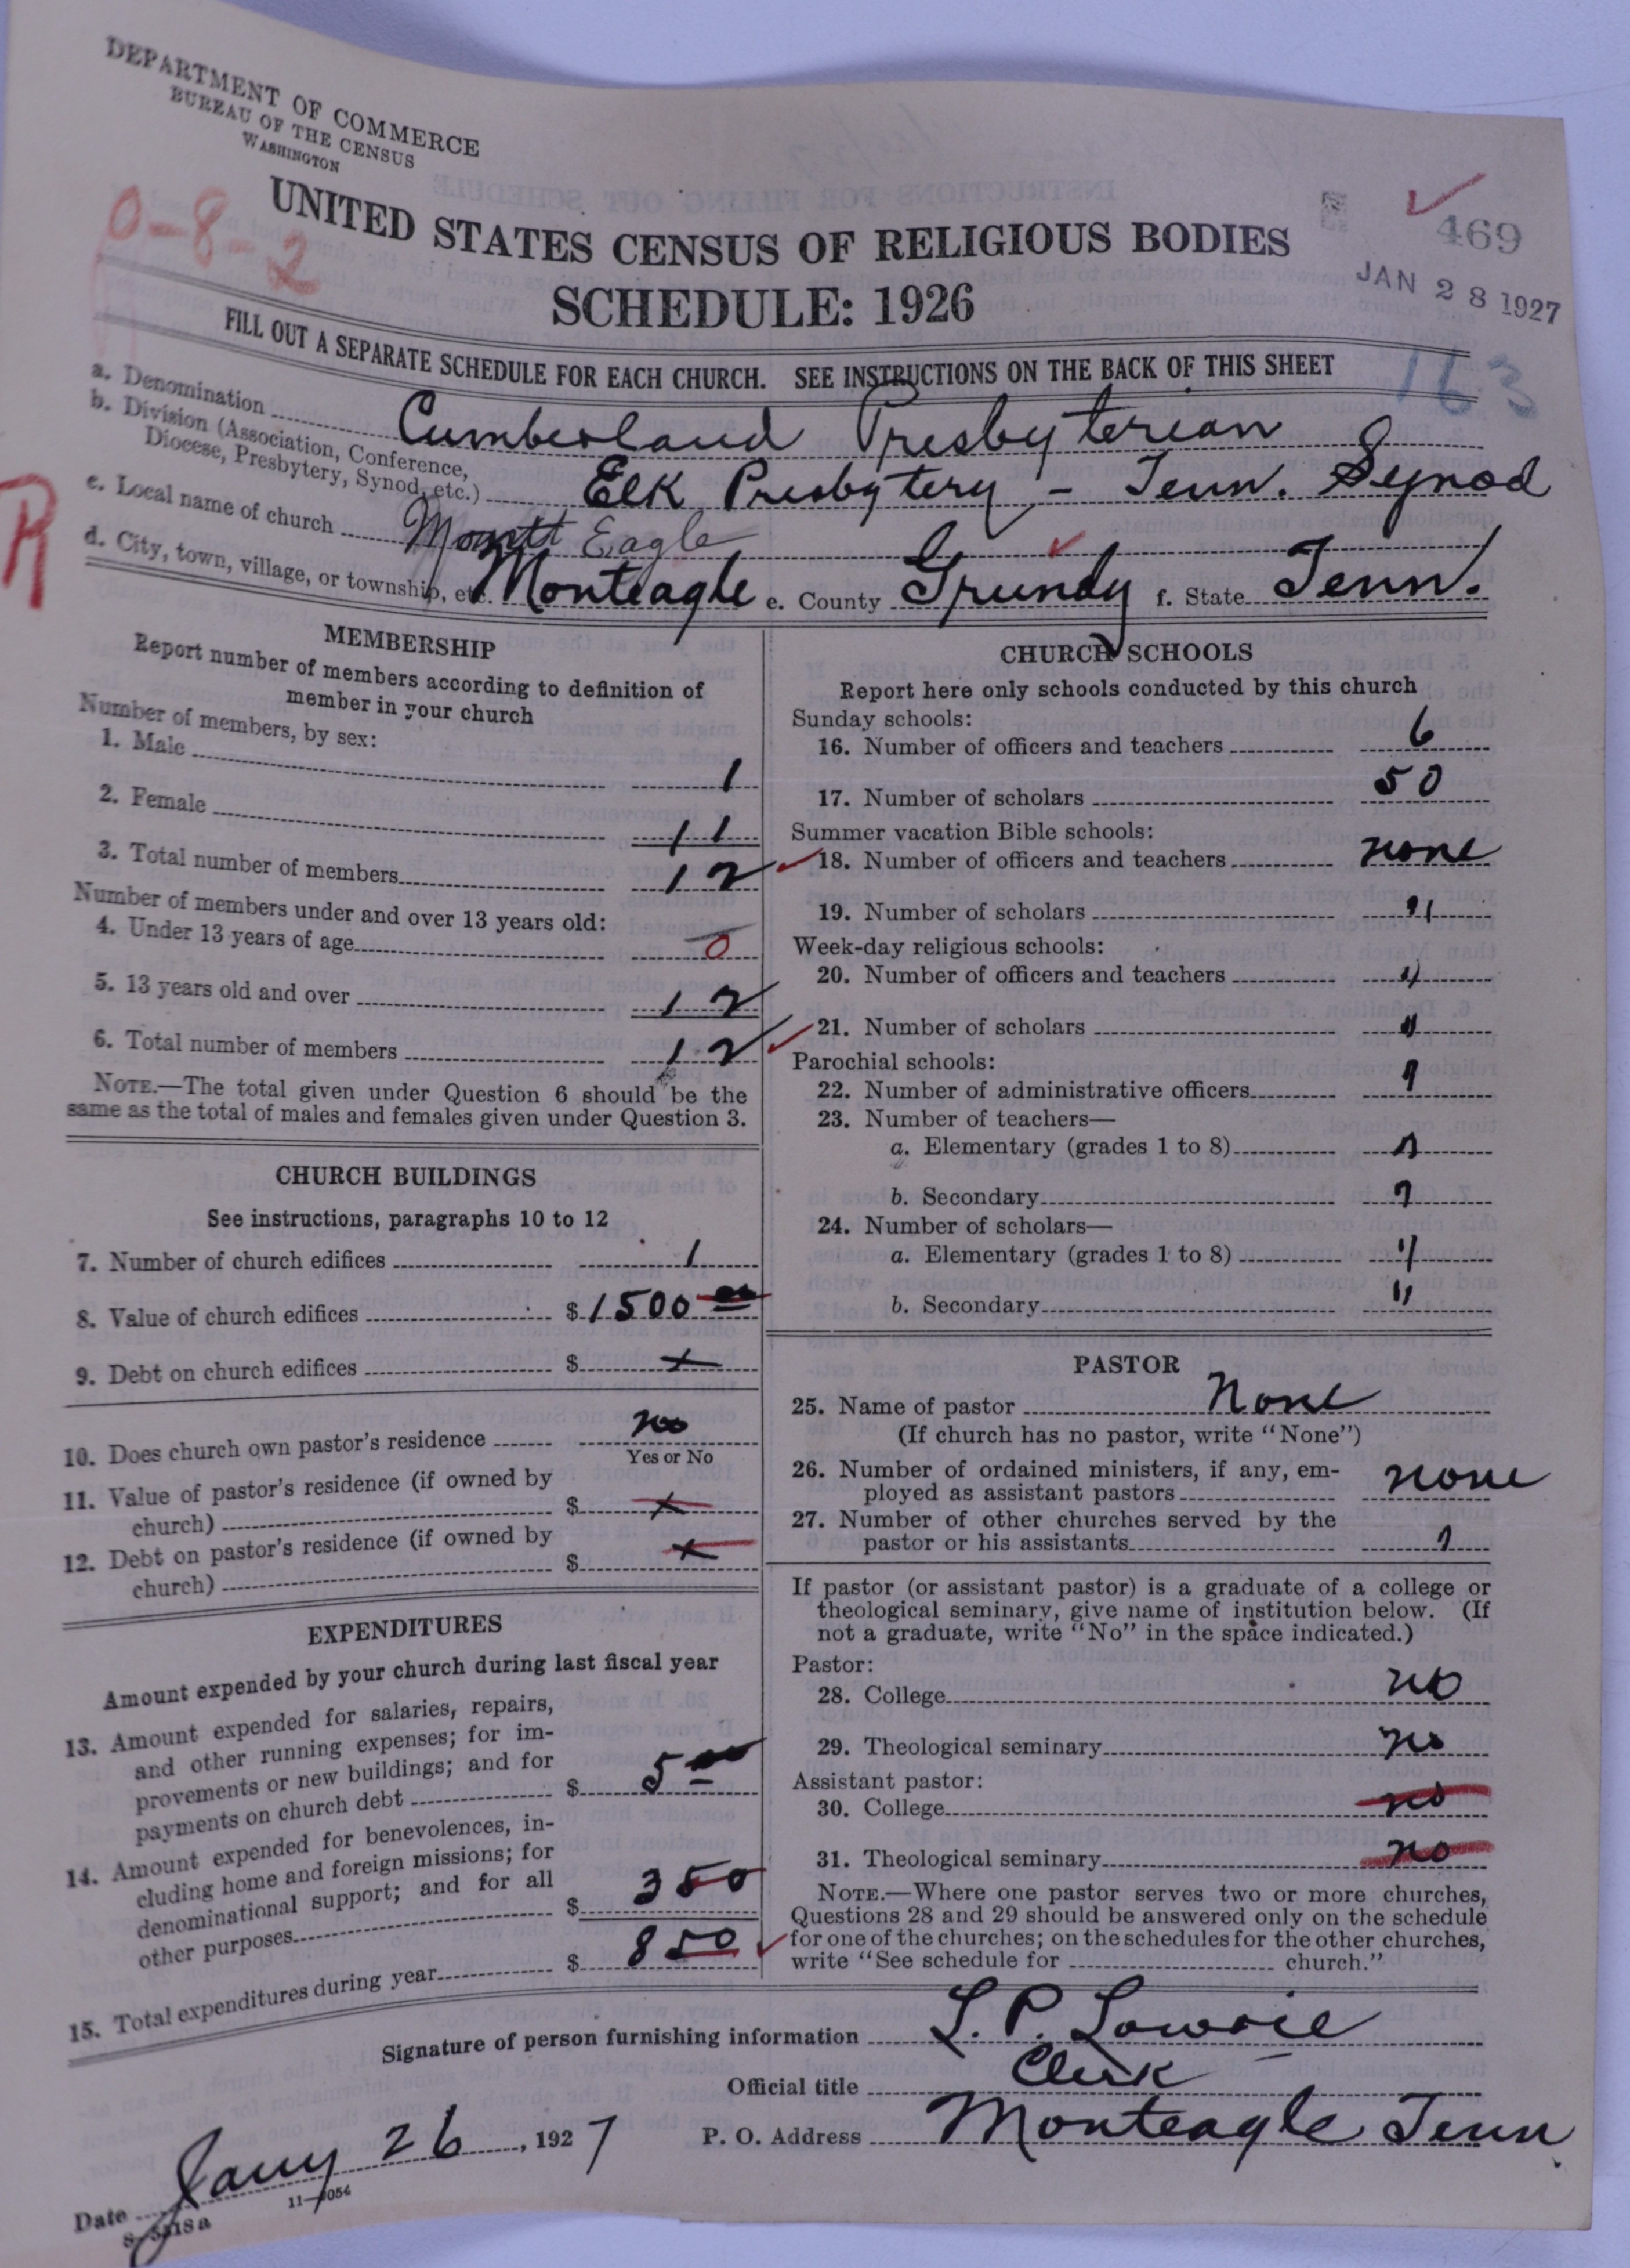 DEPARTMENT OF COMMERCE
BUREAU OF THE CENSUS
WASHINGTON
0-8-2
UNITED STATES CENSUS OF RELIGIOUS BODIES
SCHEDULE: 1926
469
JAN 28 1927
163
FILL OUT A SEPARATE SCHEDULE FOR EACH CHURCH. SEE INSTRUCTIONS ON THE BACK OF THIS SHEET
a. Denomination Cumberland Presbyterian
b. Division (Association, Conference,
Diocese, Presbytery, Synod, etc.) Elk Presbytery - Tenn. Synod
R
c. Local name of church Mountt Eagle
d. City, town, village, or township, etc. Monteagle e. County Grundy f. State Tenn.
MEMBERSHIP
Report number of members according to definition of
member in your church
Number of members, by sex:
1. Male 1
2. Female 11
3. Total number of members 12
Number of members under and over 13 years old:
4. Under 13 years of age 0
5. 13 years old and over 12
6. Total number of members 12
NOTE.—The total given under Question 6 should be the
same as the total of males and females given under Question 3.
CHURCH BUILDINGS
See instructions, paragraphs 10 to 12
7. Number of church edifices 1
8. Value of church edifices $1500 00
9. Debt on church edifices $ x
10. Does church own pastor's residence no
Yes or No
11. Value of pastor's residence (if owned by
church) $ x
12. Debt on pastor's residence (if owned by
church) $ x
EXPENDITURES
Amount expended by your church during last fiscal year
13. Amount expended for salaries, repairs,
and other running expenses; for im-
provements or new buildings; and for
payments on church debt $ 5 00
14. Amount expended for benevolences, in-
cluding home and foreign missions; for
denominational support; and for all
other purposes $ 3 50
15. Total expenditures during year $ 8 50
CHURCH SCHOOLS
Report here only schools conducted by this church
Sunday schools:
16. Number of officers and teachers 6
17. Number of scholars 50
Summer vacation Bible schools:
18. Number of officers and teachers none
19. Number of scholars "
Week-day religious schools:
20. Number of officers and teachers "
21. Number of scholars "
Parochial schools:
22. Number of administrative officers "
23. Number of teachers—
a. Elementary (grades 1 to 8) "
b. Secondary "
24. Number of scholars—
a. Elementary (grades 1 to 8) "
b. Secondary "
PASTOR
25. Name of pastor None
(If church has no pastor, write "None")
26. Number of ordained ministers, if any, em-
ployed as assistant pastors none
27. Number of other churches served by the
pastor or his assistants "
If pastor (or assistant pastor) is a graduate of a college or
theological seminary, give name of institution below. (If
not a graduate, write "No" in the space indicated.)
Pastor:
28. College no
29. Theological seminary no
Assistant pastor:
30. College no
31. Theological seminary no
NOTE.—Where one pastor serves two or more churches,
Questions 28 and 29 should be answered only on the schedule
for one of the churches; on the schedules for the other churches,
write "See schedule for church."
Signature of person furnishing information L. P. Lowrie
Official title Clerk
P. O. Address Monteagle Tenn.
Date Jany 26, 1927
11-9054
8-5518a